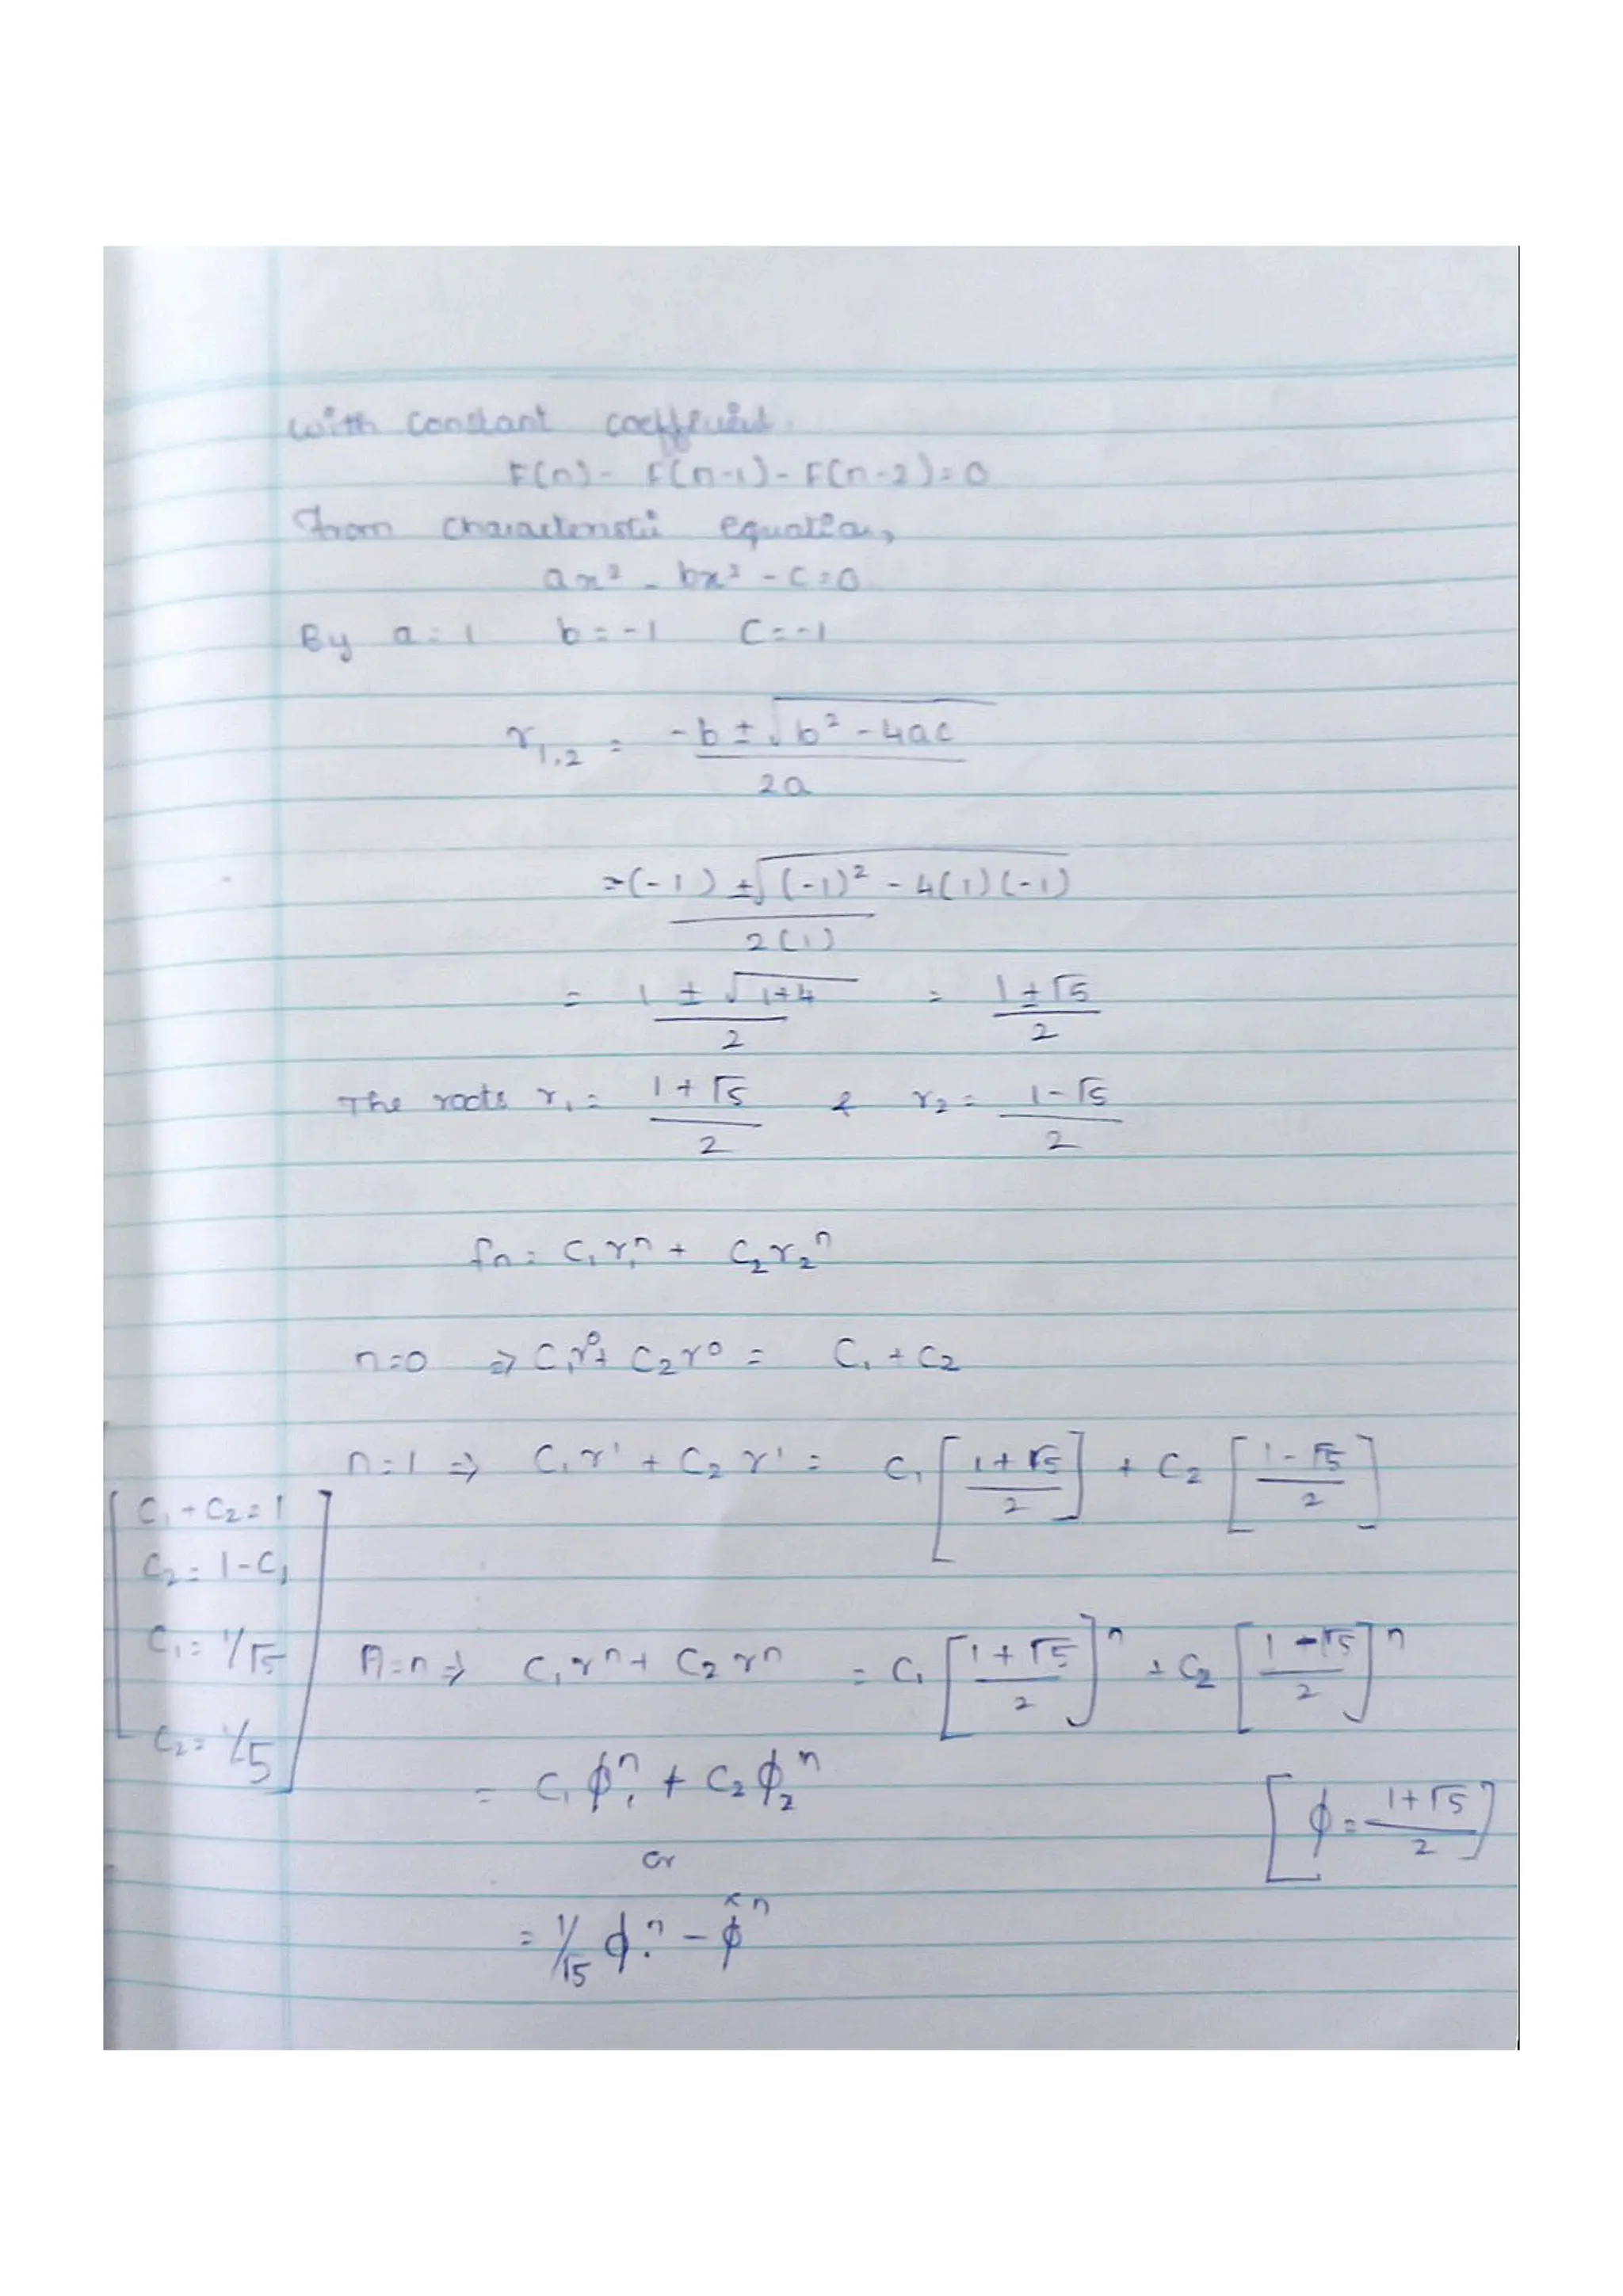 with constant coefficient.
F(n) - F(n-1) - F(n-2) = 0
From characteristic equation,
ax² - bx² - c = 0
By a = 1 b = -1 C = -1
r₁,₂ = (-b ± √(b² - 4ac)) / 2a
= -(-1) ± √((-1)² - 4(1)(-1)) / 2(1)
= (1 ± √(1+4)) / 2 = (1 ± √5) / 2
The roots r₁ = (1 + √5) / 2 & r₂ = (1 - √5) / 2
fn = C₁r₁ⁿ + C₂r₂ⁿ
n=0 ⇒ C₁r⁰ + C₂r⁰ = C₁ + C₂
n=1 ⇒ C₁r¹ + C₂r¹ = C₁ [(1+√5)/2] + C₂ [(1-√5)/2]
[C₁ + C₂ = 1
C₂ = 1 - C₁
C₁ = 1/√5
C₂ = 1/√5]
n=n ⇒ C₁rⁿ + C₂rⁿ = C₁ [(1+√5)/2]ⁿ + C₂ [(1-√5)/2]ⁿ
= C₁ϕ₁ⁿ + C₂ϕ₂ⁿ
[ϕ = (1+√5)/2]
or
= 1/√5 ϕⁿ - ϕ̂ⁿ